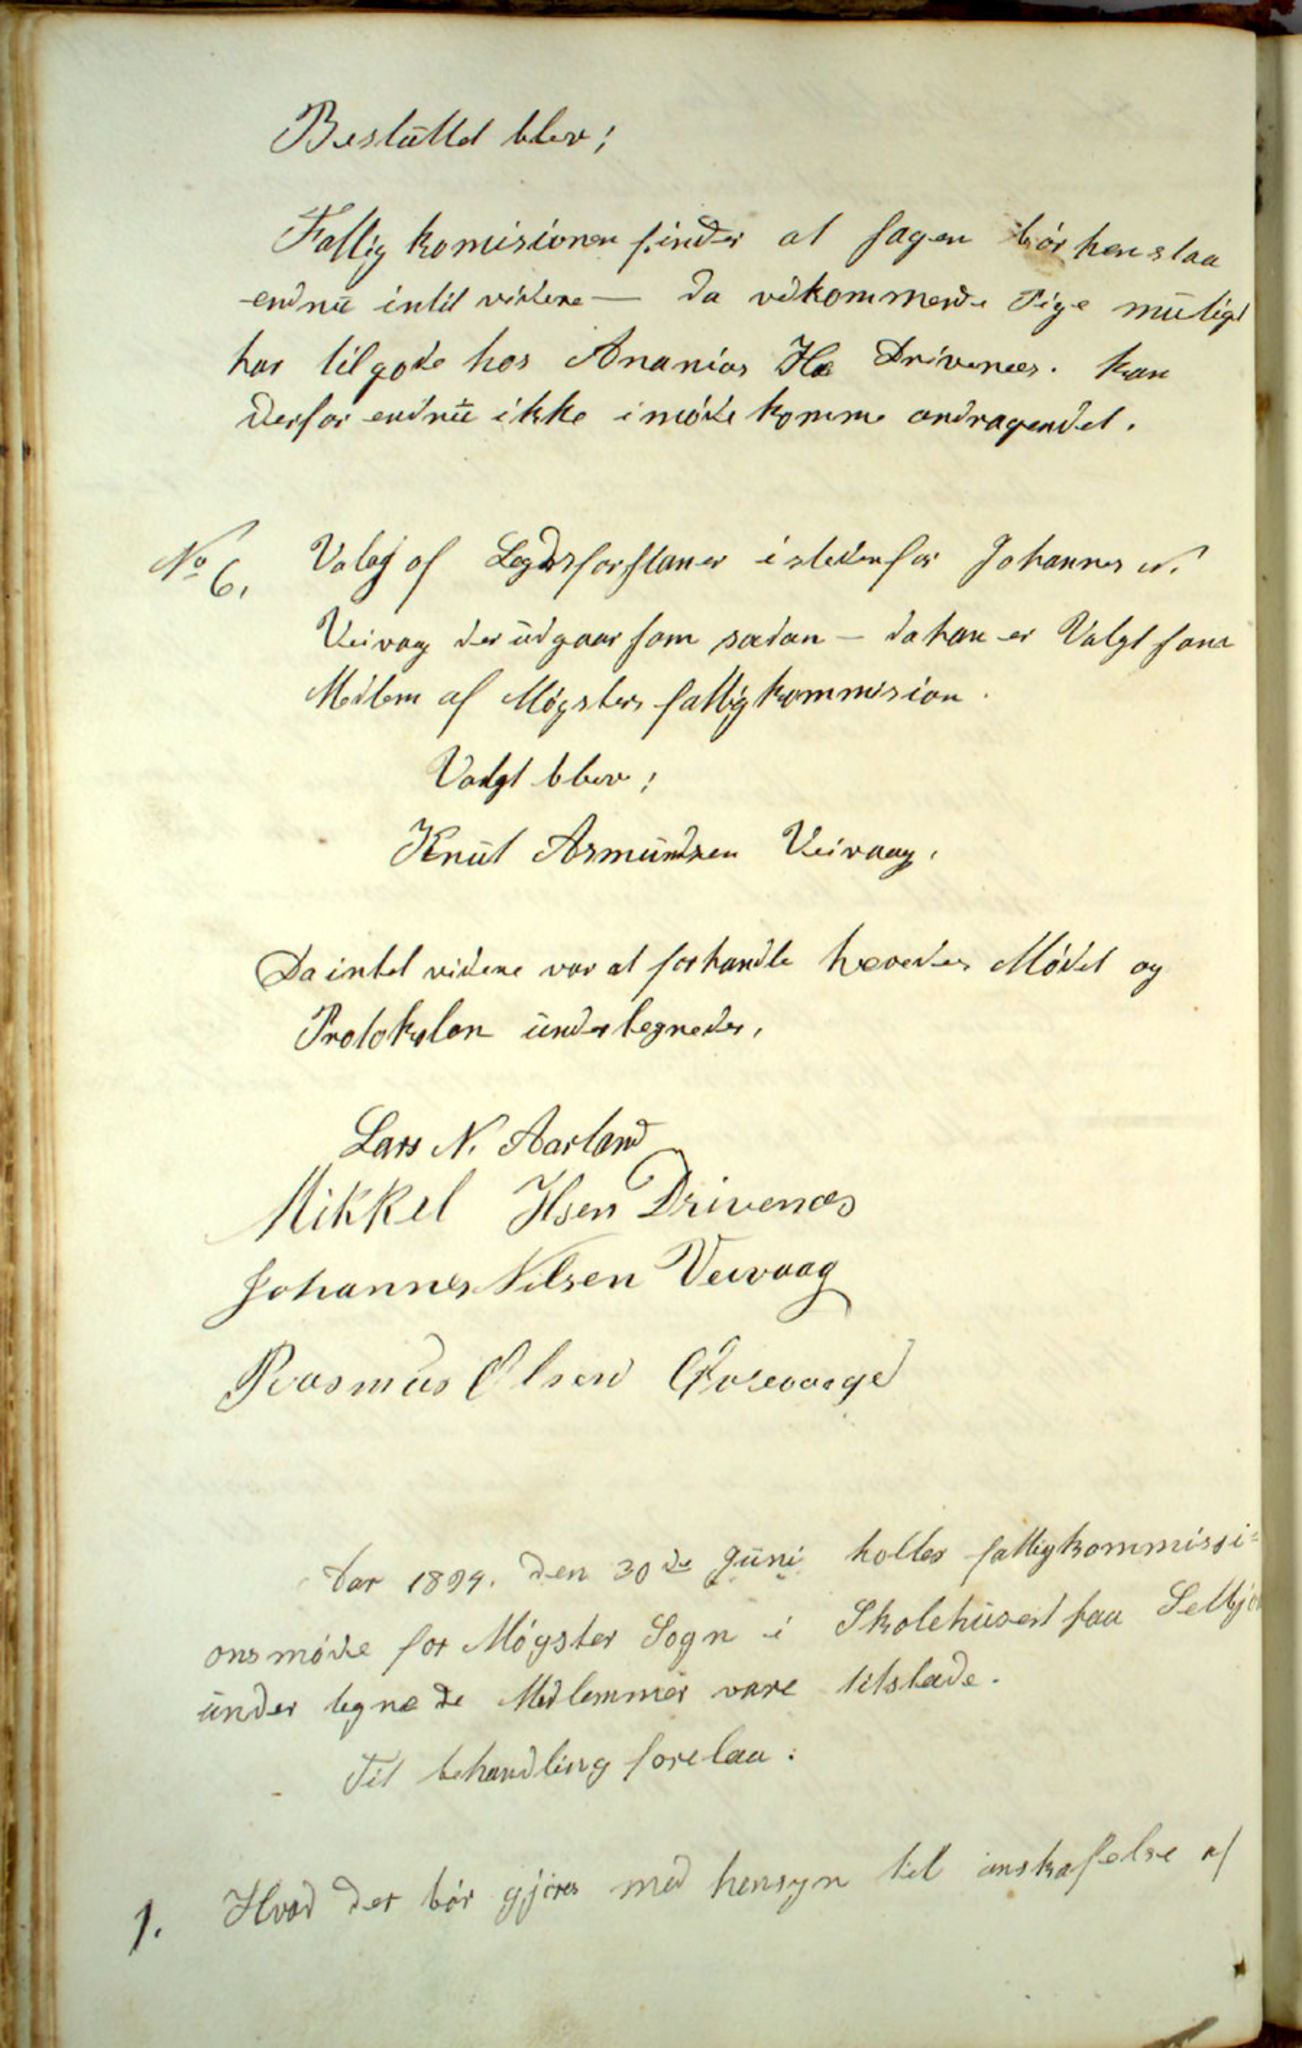 Beslüttet blev;
Fattig komisionen finder at sagen bör henstaa
endnü intil videre — da vedkommende Pige müligt
har tilgode hos Ananias Drivenes. kan
derfor endnü ikke imöde komme andragendet.
No 6. Valg af Legdsforstaner istedenfor Johannes N.
Veivaag der üdgaar som sadan — da han er Valgt som
Medlem af Møgsters fattigkommision.
Valgt blev;
Knüt Asmündsen Veivaag.
Da intet videre var at forhandle hævedes Mödet og
Protokolen ündertegnedes.
Lars N. Aarland
Mikkel Hsen Drivenæs
Johannes Nilsen Veivaag
Rasmus Olsen
Aar 1894. den 30de Jüni holtes fattigkommissi-
onsmöde for Møgster Sogn i Skolehüset paa Selbjør
ünder tegnede Medlemmer vare tilstæde.
Til behandling forelaa:
1. Hvad der bör gjöres med hensyn til anskafelse af